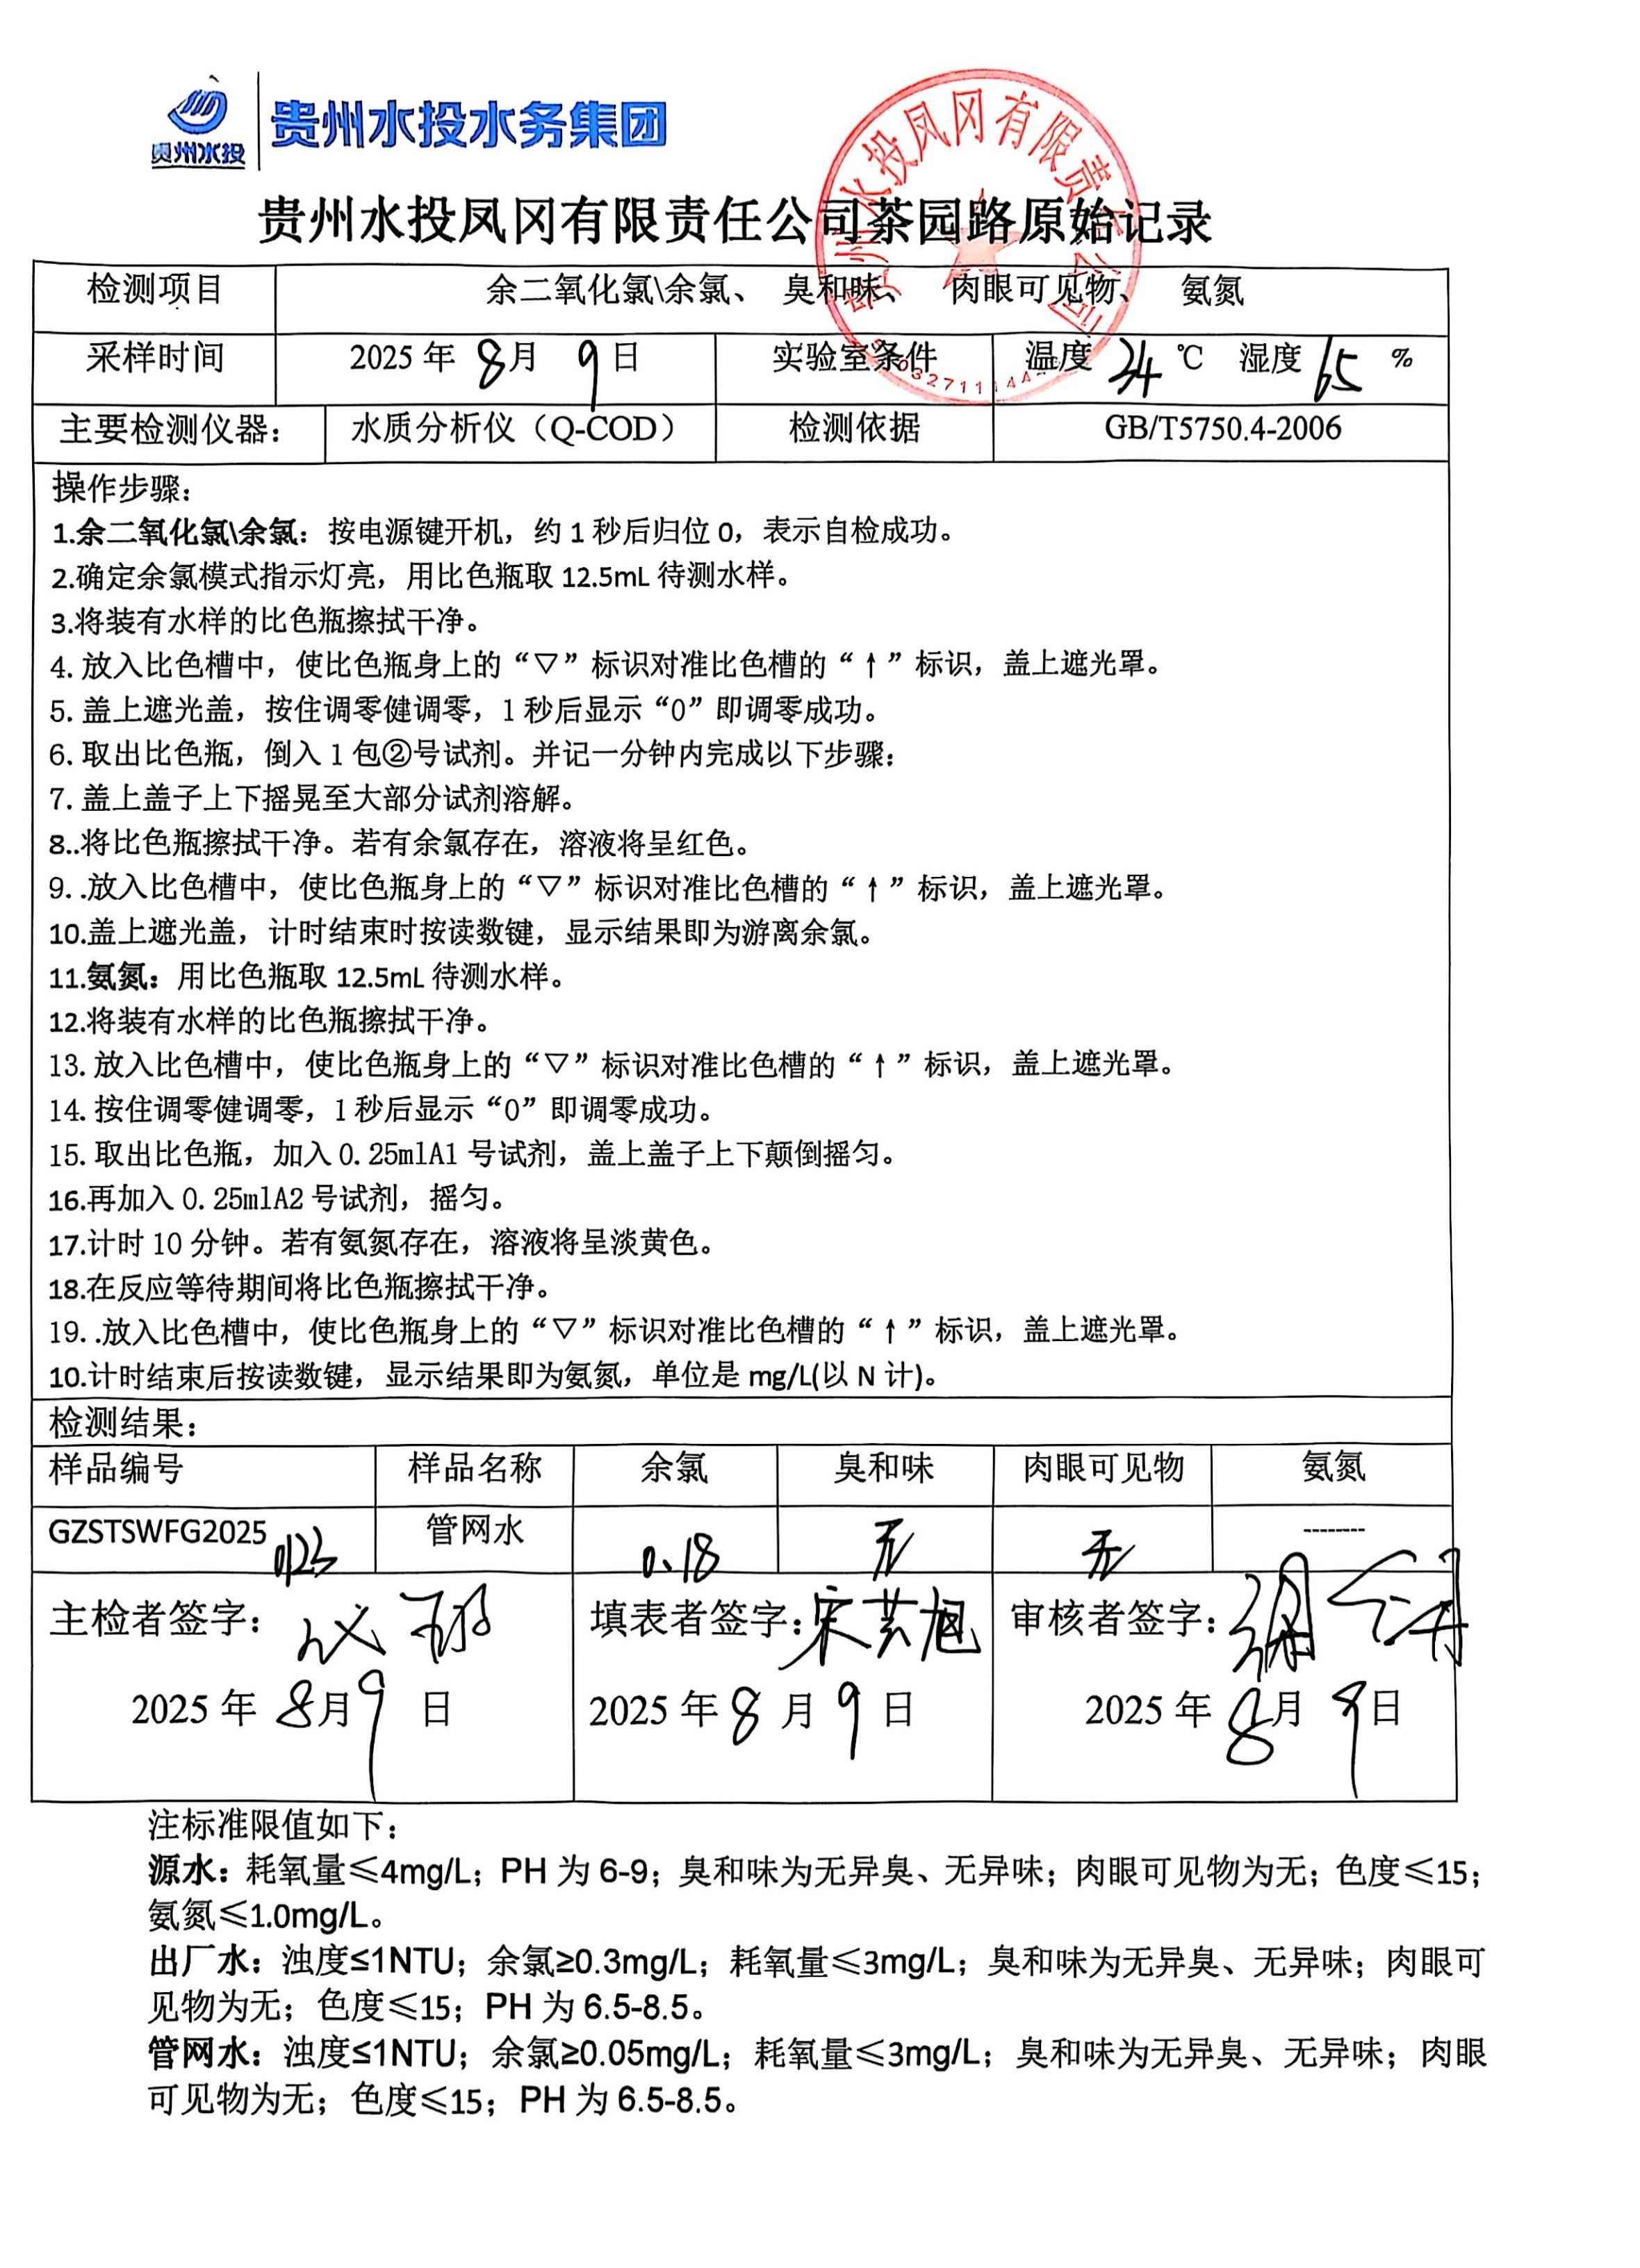 贵州水投
贵州水投水务集团
贵州水投凤冈有限责任公司
贵州水投凤冈有限责任公司茶园路原始记录
检测项目 余二氧化氯\余氯、 臭和味、 肉眼可见物、 氨氮
采样时间 2025年 8月 9日 实验室条件 温度 24 ℃ 湿度 65 %
主要检测仪器： 水质分析仪（Q-COD） 检测依据 GB/T5750.4-2006
操作步骤：
1.余二氧化氯\余氯：按电源键开机，约1秒后归位0，表示自检成功。
2.确定余氯模式指示灯亮，用比色瓶取12.5mL待测水样。
3.将装有水样的比色瓶擦拭干净。
4. 放入比色槽中，使比色瓶身上的“▽”标识对准比色槽的“↑”标识，盖上遮光罩。
5. 盖上遮光盖，按住调零健调零，1秒后显示“0”即调零成功。
6. 取出比色瓶，倒入1包②号试剂。并记一分钟内完成以下步骤：
7. 盖上盖子上下摇晃至大部分试剂溶解。
8..将比色瓶擦拭干净。若有余氯存在，溶液将呈红色。
9. .放入比色槽中，使比色瓶身上的“▽”标识对准比色槽的“↑”标识，盖上遮光罩。
10.盖上遮光盖，计时结束时按读数键，显示结果即为游离余氯。
11.氨氮：用比色瓶取12.5mL待测水样。
12.将装有水样的比色瓶擦拭干净。
13. 放入比色槽中，使比色瓶身上的“▽”标识对准比色槽的“↑”标识，盖上遮光罩。
14. 按住调零健调零，1秒后显示“0”即调零成功。
15. 取出比色瓶，加入0.25mlA1号试剂，盖上盖子上下颠倒摇匀。
16.再加入0.25mlA2号试剂，摇匀。
17.计时10分钟。若有氨氮存在，溶液将呈淡黄色。
18.在反应等待期间将比色瓶擦拭干净。
19. .放入比色槽中，使比色瓶身上的“▽”标识对准比色槽的“↑”标识，盖上遮光罩。
10.计时结束后按读数键，显示结果即为氨氮，单位是mg/L(以N计)。
检测结果：
样品编号 样品名称 余氯 臭和味 肉眼可见物 氨氮
GZSTSWFG2025 0123 管网水 0.18 无 无 --------
主检者签字： 填表者签字： 审核者签字：
2025年 8月 9日 2025年 8月 9日 2025年 8月 9日
注标准限值如下：
源水：耗氧量≤4mg/L；PH为6-9；臭和味为无异臭、无异味；肉眼可见物为无；色度≤15；
氨氮≤1.0mg/L。
出厂水：浊度≤1NTU；余氯≥0.3mg/L；耗氧量≤3mg/L；臭和味为无异臭、无异味；肉眼可
见物为无；色度≤15；PH为6.5-8.5。
管网水：浊度≤1NTU；余氯≥0.05mg/L；耗氧量≤3mg/L；臭和味为无异臭、无异味；肉眼
可见物为无；色度≤15；PH为6.5-8.5。